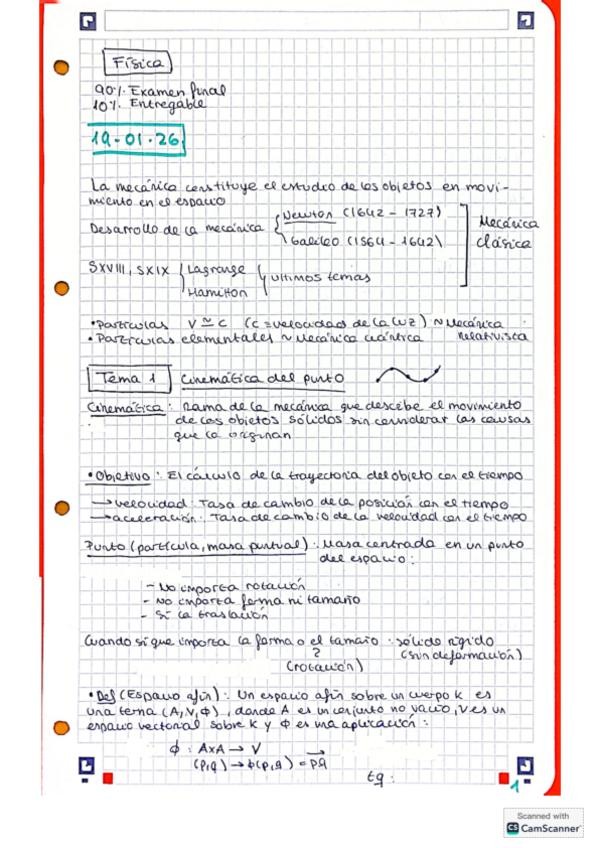 Física
90%. Examen final
10%. Entregable
19-01-26
La mecánica constituye el estudio de los objetos en movi-
miento en el espacio
Desarrollo de la mecánica { Newton (1642 - 1727)
Galileo (1564 - 1642)
Mecánica
clásica
SXVIII, SXIX { Lagrange
Hamilton } últimos temas
• Partículas V ≃ c (c = velocidad de la luz) ~ Mecánica
relativista
• Partículas elementales ~ Mecánica cuántica
Tema 1 Cinemática del punto
Cinemática: Rama de la mecánica que describe el movimiento
de los objetos sólidos sin considerar las causas
que lo originan
• Objetivo: El cálculo de la trayectoria del objeto con el tiempo
→ velocidad: Tasa de cambio de la posición con el tiempo
→ aceleración: Tasa de cambio de la velocidad con el tiempo
Punto (partícula, masa puntual): Masa centrada en un punto
del espacio:
- No importa rotación
- No importa forma ni tamaño
- Sí la traslación
Cuando sí que importa la forma o el tamaño: sólido rígido
? (sin deformación)
(rotación)
• Def (Espacio afín): Un espacio afín sobre un cuerpo K es
una terna (A, V, ϕ), donde A es un conjunto no vacío, V es un
espacio vectorial sobre K y ϕ es una aplicación:
ϕ : A×A → V
(p,q) → ϕ(p,q) = pq
tq:
1
Scanned with
CS CamScanner